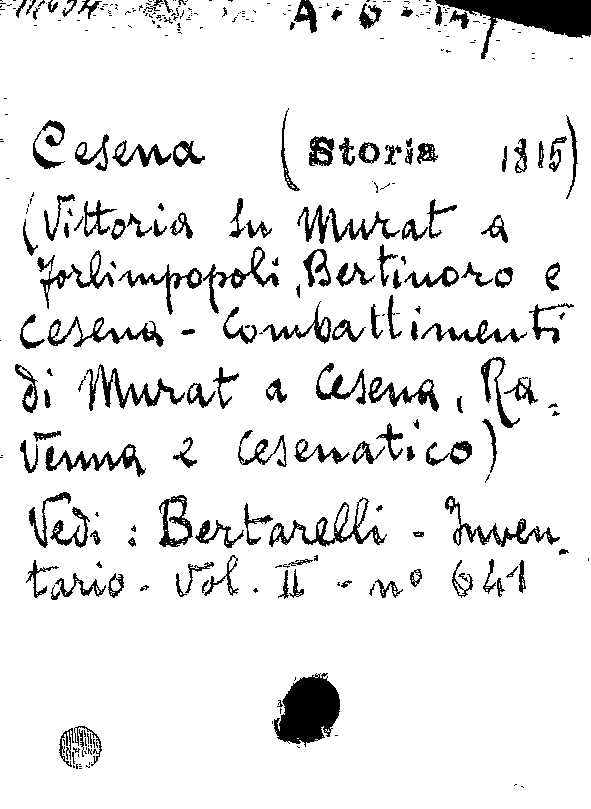 Cesena (Storia 1815)
(Vittoria su Murat a
Forlimpopoli, Bertinoro e
Cesena - Combattimenti
di Murat a Cesena, Ra=
venna e Cesenatico)
Vedi : Bertarelli - Inven-
tario - Vol. II - n° 641